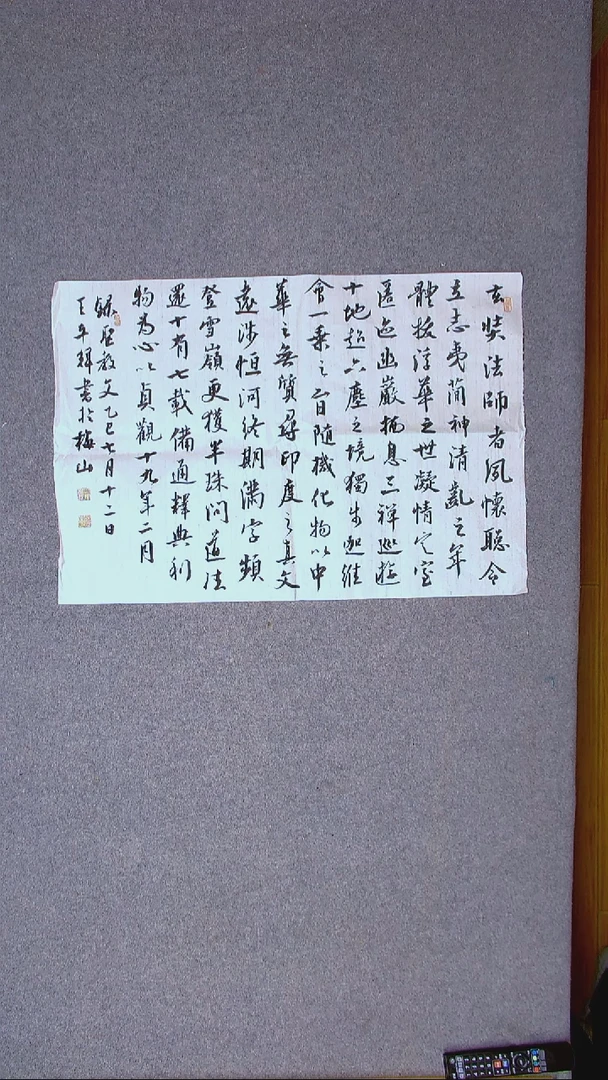 玄奘法師者夙懷聰令
立志夷簡神清齔之年
體拔浮華之世凝情定室
匿迹幽巖栖息三禪巡遊
十地超六塵之境獨步迦維
會一乘之旨隨機化物以中
華之無質尋印度之真文
遠涉恒河終期滿字頻
登雪嶺更獲半珠問道法
還十有七載備通釋典利
物為心以貞觀十九年二月
錄聖教文乙巳七月十二日
王年輝書於梅山